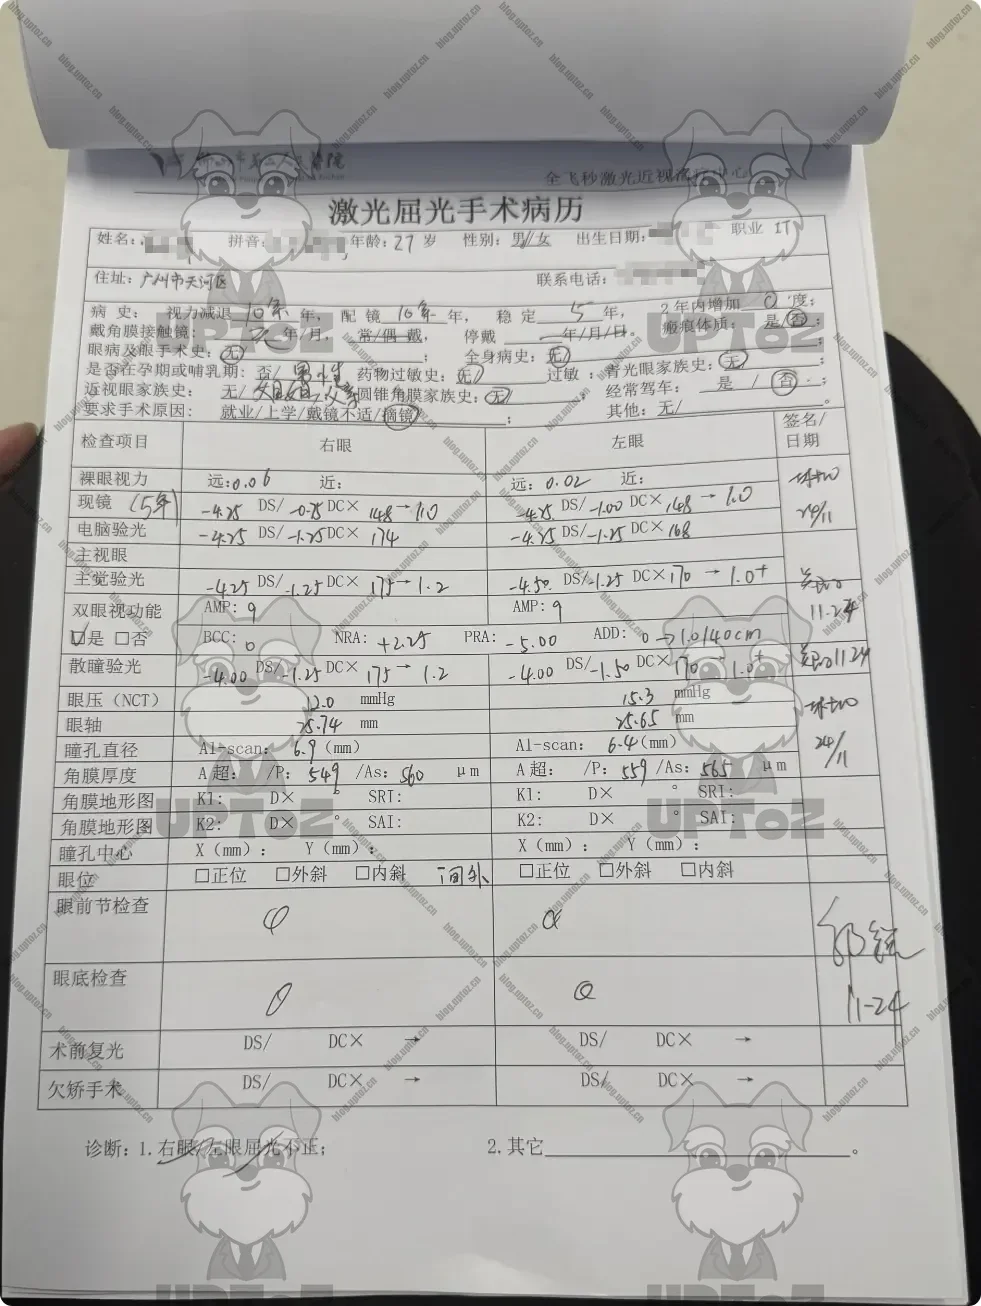 全飞秒激光近视
激光屈光手术病历
姓名: 拼音: 年龄: 27 岁 性别: 男/女 出生日期: 职业 IT
住址: 广州市天河区 联系电话:
病 史: 视力减退 10年 年, 配 镜 10年 年, 稳 定 5 年, 2年内增加 0 度;
戴角膜接触镜: 无 年/月, 常/偶 戴, 停戴 年/月/日。 瘢痕体质: 是/否;
眼病及眼手术史: 无/ ; 全身病史: 无/ ;
是否在孕期或哺乳期: 否/ 药物过敏史: 无/ 过敏; 青光眼家族史: 无/ ;
近视眼家族史: 无/ 圆锥角膜家族史: 无/ ; 经常驾车: 是 / 否;
要求手术原因: 就业/上学/戴镜不适/摘镜 ; 其他: 无/ 。
检查项目 右眼 左眼 签名/日期
裸眼视力 远:0.06 近: 远: 0.02 近:
现镜 (5年) -4.25 DS/ -0.75 DC× 148→1.0 -4.75 DS/-1.00 DC×168 → 1.0
24/11
电脑验光 -4.25 DS/-1.25 DC× 174 -4.75 DS/-1.25 DC×168
主视眼
主觉验光 -4.25 DS/-1.25 DC× 175→ 1.2 -4.50 DS/-1.25 DC×170 → 1.0+
双眼视功能 AMP: 9 AMP: 9
11.24
是 □否 BCC: 0 NRA: +2.25 PRA: -5.00 ADD: 0→1.0/40cm
散瞳验光 -4.00 DS/-1.25 DC× 175→ 1.2 -4.00 DS/-1.50 DC×170 → 1.0+ 1124
眼压（NCT） 12.0 mmHg 15.3 mmHg
眼轴 25.74 mm 25.65 mm
瞳孔直径 A1-scan: 6.9(mm) A1-scan: 6.4(mm)
24/11
角膜厚度 A超: /P: 549 /As: 560 μm A超: /P: 559 /As: 565 μm
角膜地形图 K1: D× ° SRI: K1: D× ° SRI:
角膜地形图 K2: D× ° SAI: K2: D× ° SAI:
瞳孔中心 X（mm）: Y（mm）: X（mm）: Y（mm）:
眼位 □正位 □外斜 □内斜 □正位 □外斜 □内斜
眼前节检查
眼底检查
11-24
术前复光 DS/ DC× → DS/ DC× →
欠矫手术 DS/ DC× → DS/ DC× →
诊断: 1.右眼/左眼屈光不正; 2.其它 。
UPToZ
blog.uptoz.cn